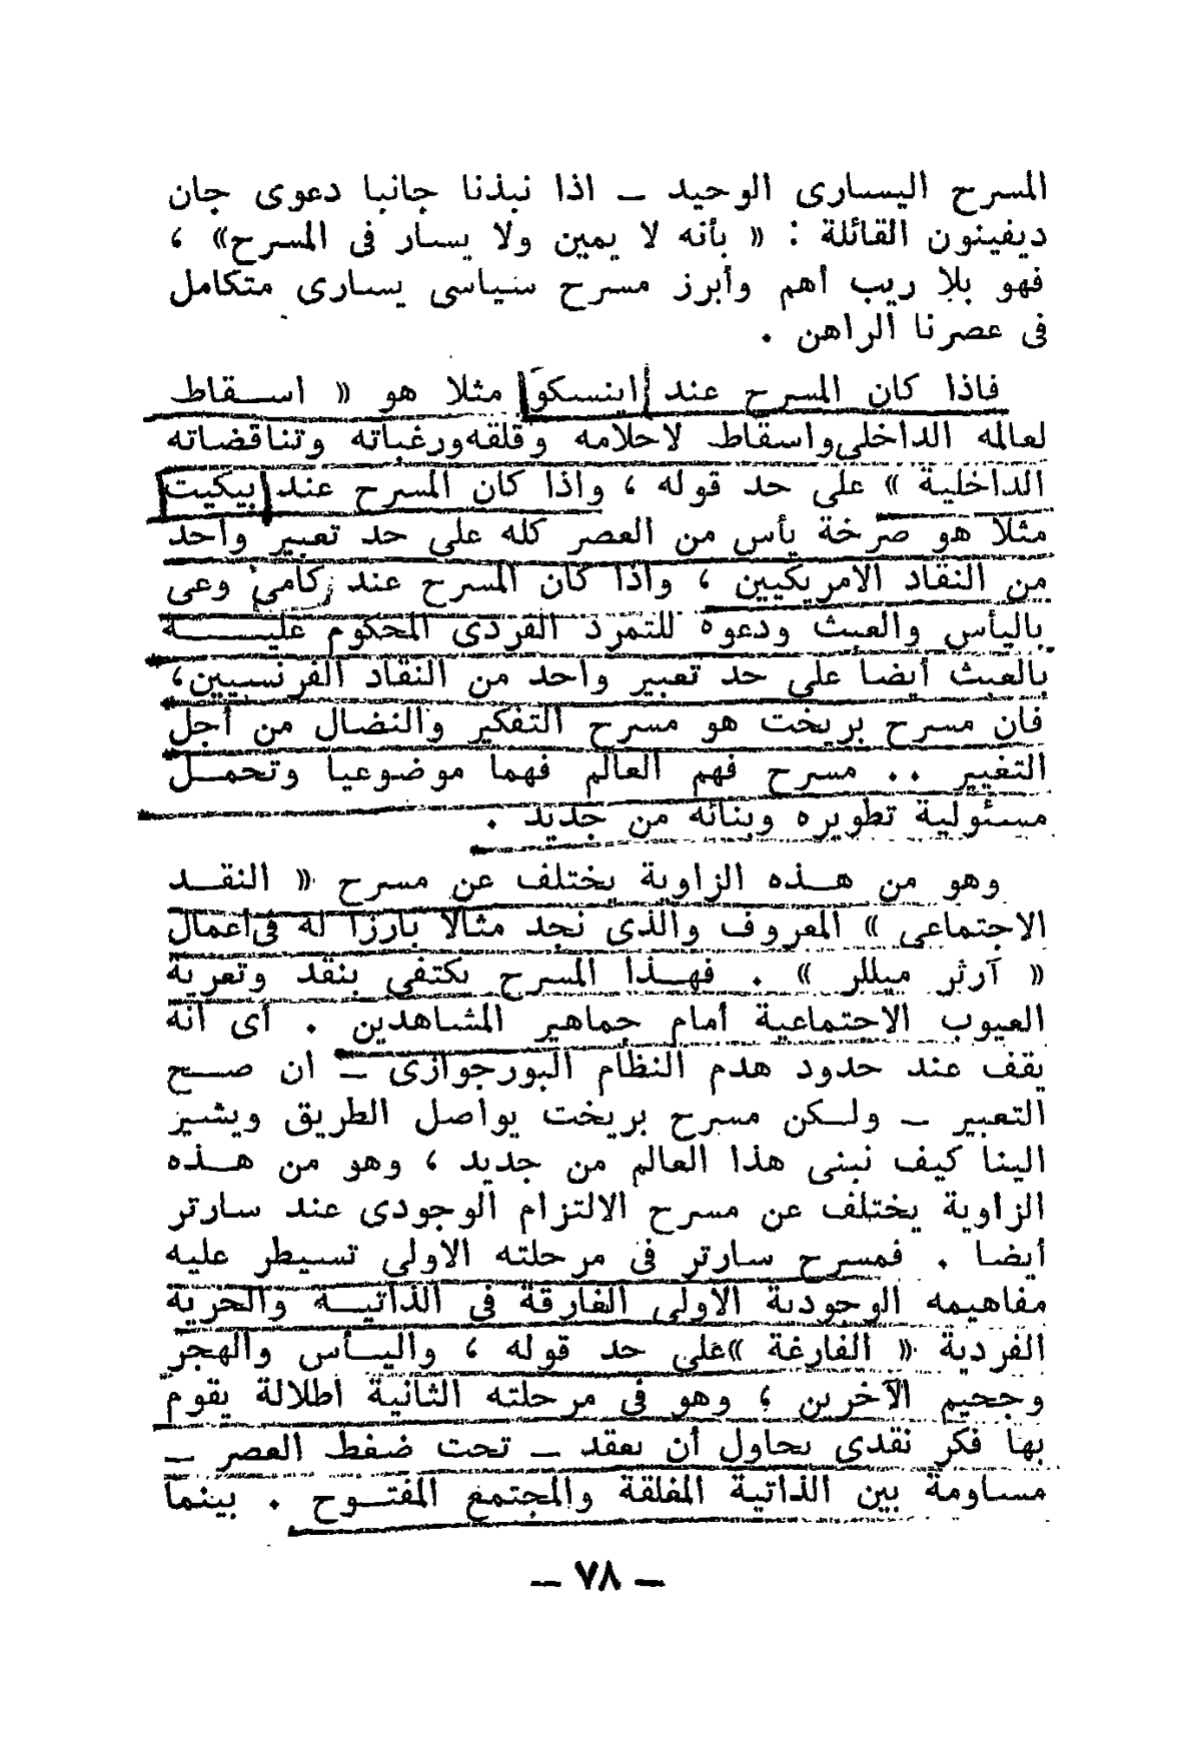 المسرح اليسارى الوحيد ــ اذا نبذنا جانبا دعوى جان
ديفينون القائلة : « بأنه لا يمين ولا يسار فى المسرح» ،
فهو بلا ريب أهم وأبرز مسرح سياسى يسارى متكامل
فى عصرنا الراهن .
فاذا كان المسرح عند اينسكو مثلا هو « اسقاط
لعالمه الداخلى واسقاط لاحلامه وقلقه ورغباته وتناقضاته
الداخلية » على حد قوله ، واذا كان المسرح عند بيكيت
مثلا هو صرخة يأس من العصر كله على حد تعبير واحد
من النقاد الامريكيين ، واذا كان المسرح عند كامى وعى
باليأس والعبث ودعوه للتمرد الفردى المحكوم عليه
بالعبث أيضا على حد تعبير واحد من النقاد الفرنسيين،
فان مسرح بريخت هو مسرح التفكير والنضال من أجل
التغيير .. مسرح فهم العالم فهما موضوعيا وتحمل
مسئولية تطويره وبنائه من جديد .
وهو من هذه الزاوية يختلف عن مسرح « النقد
الاجتماعى » المعروف والذى نجد مثالا بارزا له فى اعمال
« آرثر ميللر » . فهذا المسرح يكتفى بنقد وتعرية
العيوب الاجتماعية أمام جماهير المشاهدين . أى انه
يقف عند حدود هدم النظام البورجوازى ــ ان صح
التعبير ــ ولكن مسرح بريخت يواصل الطريق ويشير
الينا كيف نبنى هذا العالم من جديد ، وهو من هذه
الزاوية يختلف عن مسرح الالتزام الوجودى عند سارتر
أيضا . فمسرح سارتر فى مرحلته الاولى تسيطر عليه
مفاهيمه الوجودية الاولى الغارقة فى الذاتية والحرية
الفردية « الفارغة »على حد قوله ، واليأس والهجر
وجحيم الآخرين ، وهو فى مرحلته الثانية اطلالة يقوم
بها فكر نقدى يحاول أن يعقد ــ تحت ضغط العصر ــ
مساومة بين الذاتية المغلقة والمجتمع المفتوح . بينما
ــ ٧٨ ــ